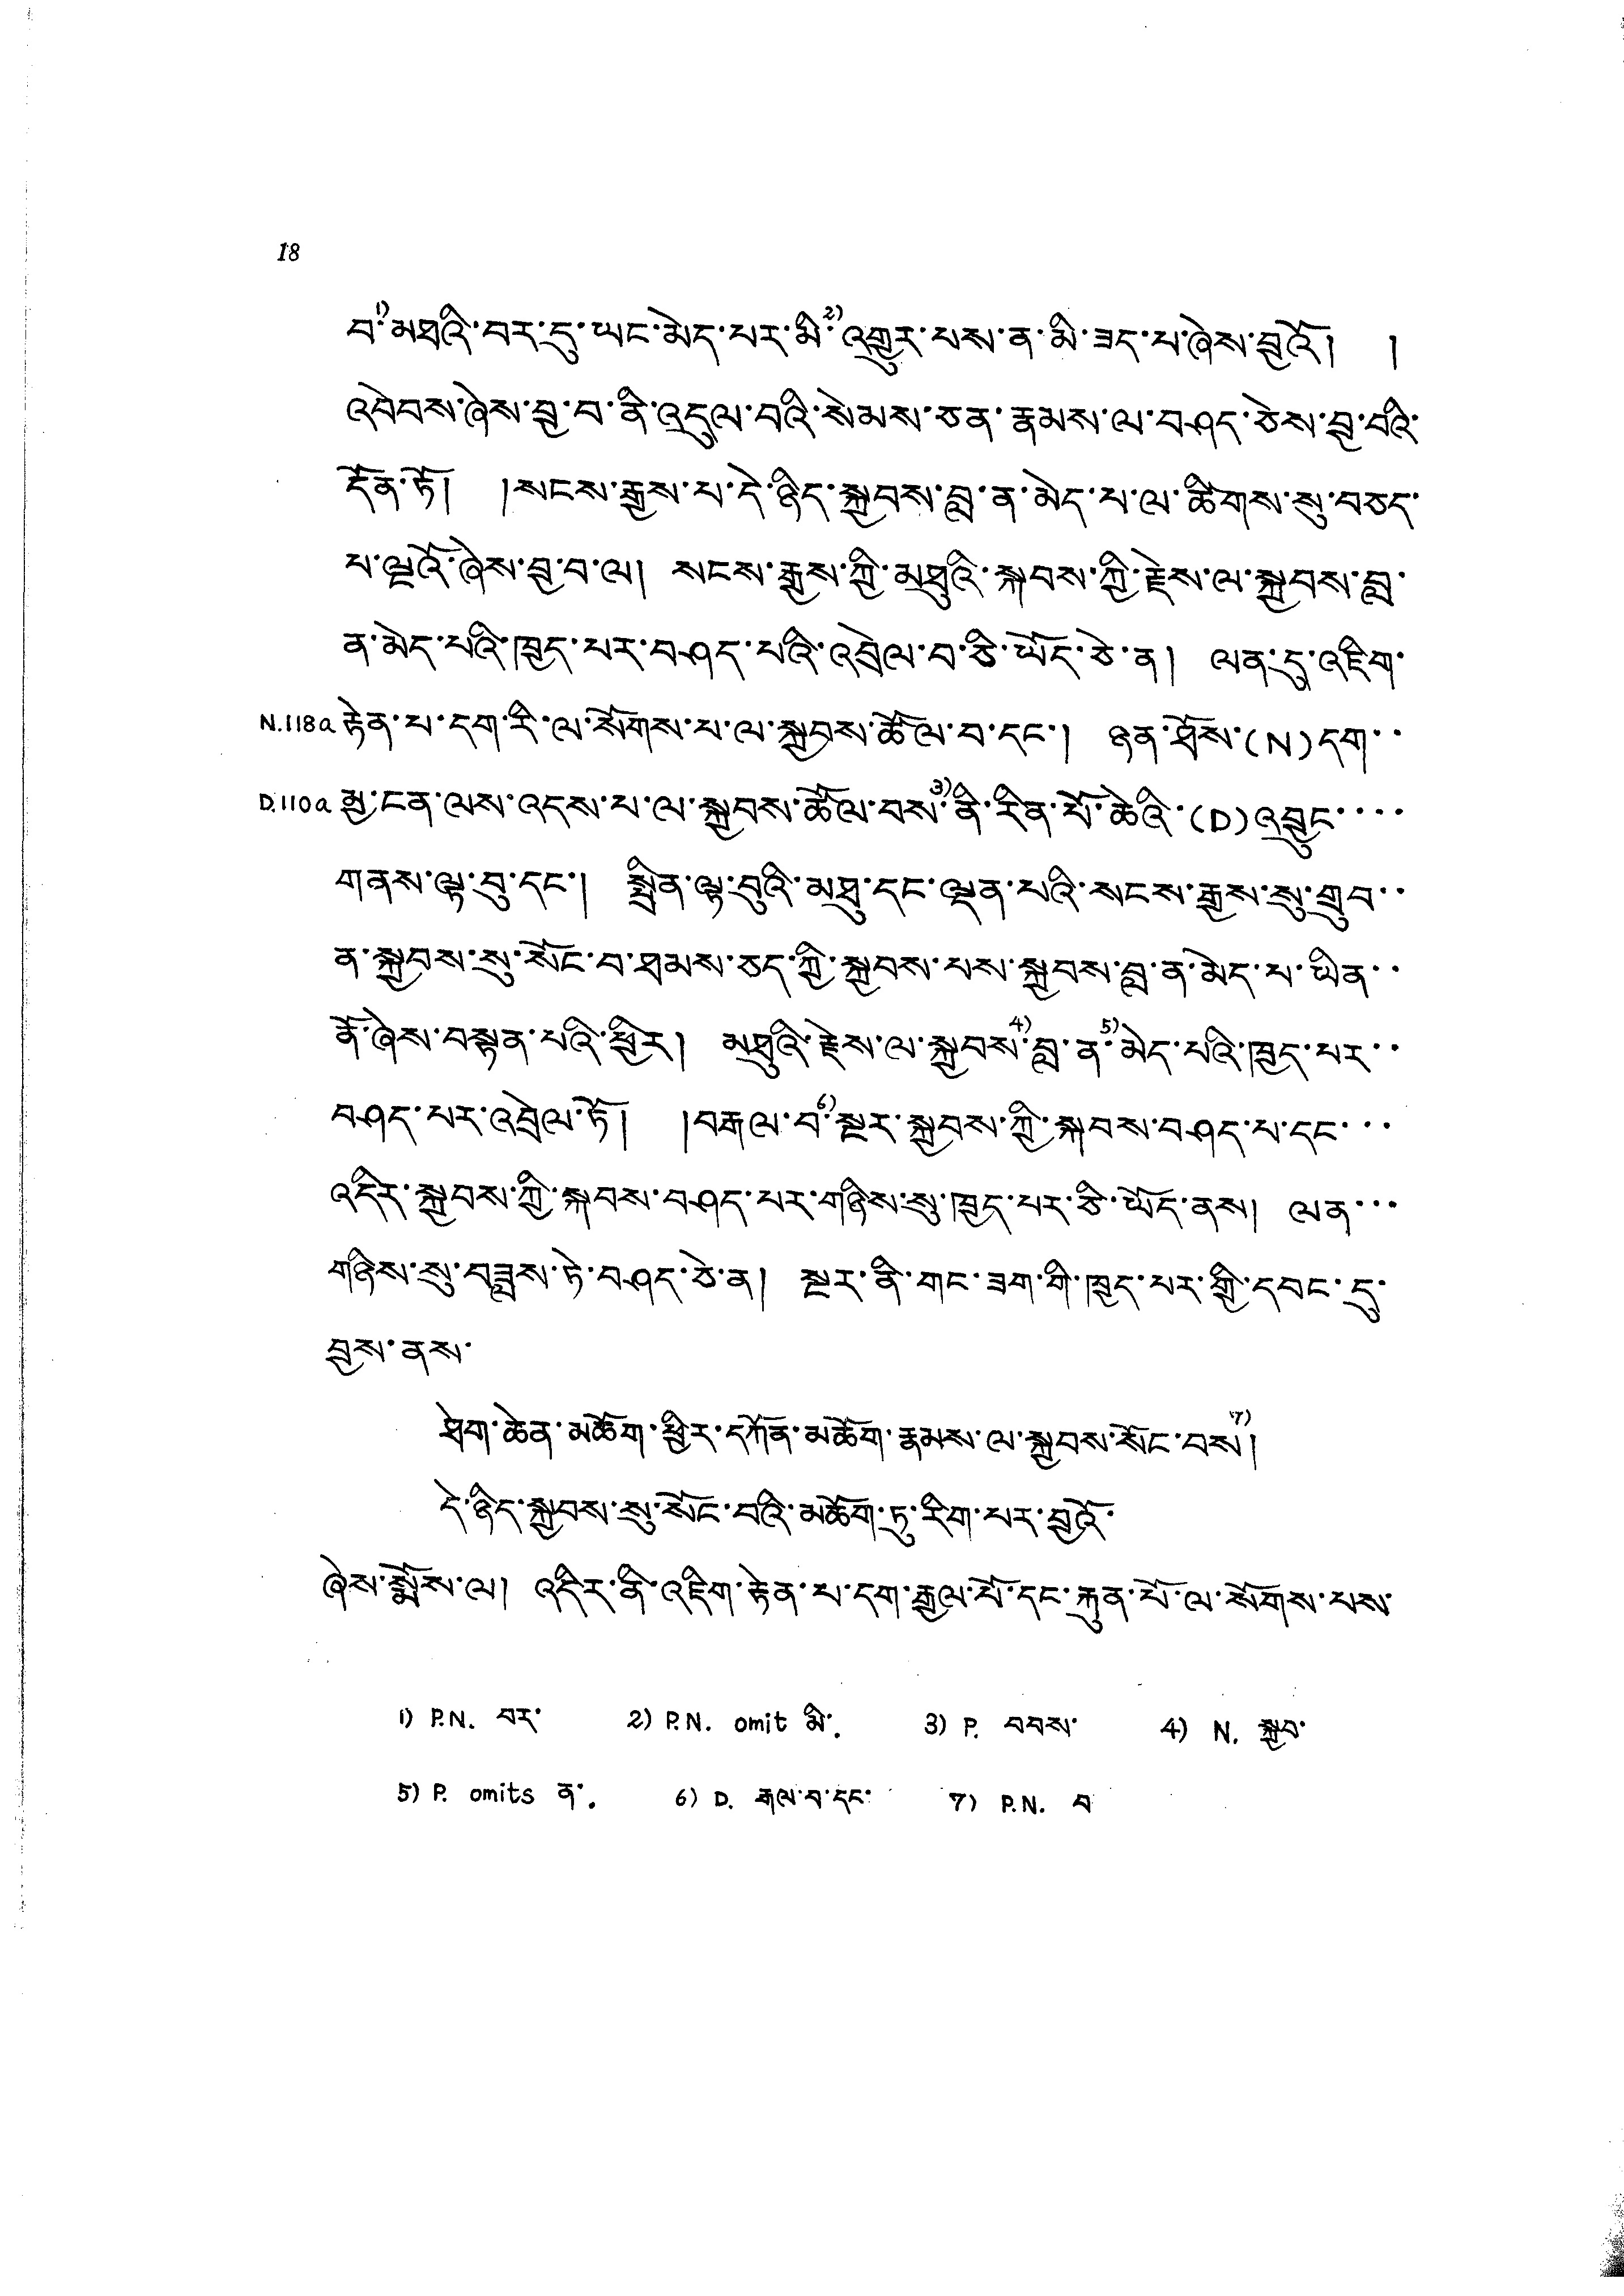 18
བ་¹⁾མཐའི་བར་དུ་ཡང་མེད་པར་མི་²⁾འགྱུར་པས་ན་མི་ཟད་པ་ཞེས་བྱའོ། །
འབེབས་ཞེས་བྱ་བ་ནི་འདུལ་བའི་སེམས་ཅན་རྣམས་ལ་བཤད་ཅེས་བྱ་བའི་
དོན་ཏོ། །སངས་རྒྱས་པ་དེ་ཉིད་སྐྱབས་བླ་ན་མེད་པ་ལ་ཚིགས་སུ་བཅད་
པ་ལྔའོ་ཞེས་བྱ་བ་ལ། སངས་རྒྱས་ཀྱི་མཐུའི་སྐབས་ཀྱི་རྗེས་ལ་སྐྱབས་བླ་
ན་མེད་པའི་ཁྱད་པར་བཤད་པའི་འབྲེལ་བ་ཅི་ཡོད་ཅེ་ན། ལན་དུ་འཇིག་
N.118a རྟེན་པ་དག་རི་ལ་སོགས་པ་ལ་སྐྱབས་ཚོལ་བ་དང་། ཉན་ཐོས་(N)དག་་
D.110a མྱ་ངན་ལས་འདས་པ་ལ་སྐྱབས་ཚོལ་བས་³⁾ནི་རིན་པོ་ཆེའི་(D)འབྱུང་་་་
གནས་ལྟ་བུ་དང་། སྤྲིན་ལྟ་བུའི་མཐུ་དང་ལྡན་པའི་སངས་རྒྱས་སུ་གྲུབ་་
ན་སྐྱབས་སུ་སོང་བ་ཐམས་ཅད་ཀྱི་སྐྱབས་པས་སྐྱབས་བླ་ན་མེད་པ་ཡིན་་
ནོ་ཞེས་བསྟན་པའི་ཕྱིར། མཐུའི་རྗེས་ལ་སྐྱབས་⁴⁾བླ་ན་⁵⁾མེད་པའི་ཁྱད་པར་་
བཤད་པར་འབྲེལ་ཏོ། །བརྒལ་བ་⁶⁾སྔར་སྐྱབས་ཀྱི་སྐབས་བཤད་པ་དང་་་
འདིར་སྐྱབས་ཀྱི་སྐབས་བཤད་པར་གཉིས་སུ་ཁྱད་པར་ཅི་ཡོད་ནས། ལན་་་
གཉིས་སུ་བཟླས་ཏེ་བཤད་ཅེ་ན། སྔར་ནི་གང་ཟག་གི་ཁྱད་པར་གྱི་དབང་དུ་
བྱས་ནས་
ཐེག་ཆེན་མཆོག་ཕྱིར་དཀོན་མཆོག་རྣམས་ལ་སྐྱབས་སོང་བས⁷⁾།
དེ་ཉིད་སྐྱབས་སུ་སོང་བའི་མཆོག་ཏུ་རིག་པར་བྱའོ་
ཞེས་སྨོས་ལ། འདིར་ནི་འཇིག་རྟེན་པ་དག་རྒྱལ་པོ་དང་རྐུན་པོ་ལ་སོགས་པས་
1) P.N. བར་ 2) P.N. omit མི་. 3) P. བབས་ 4) N. སྐྱབ་
5) P. omits ན་. 6) D. རྒལ་བ་དང་ 7) P.N. བ